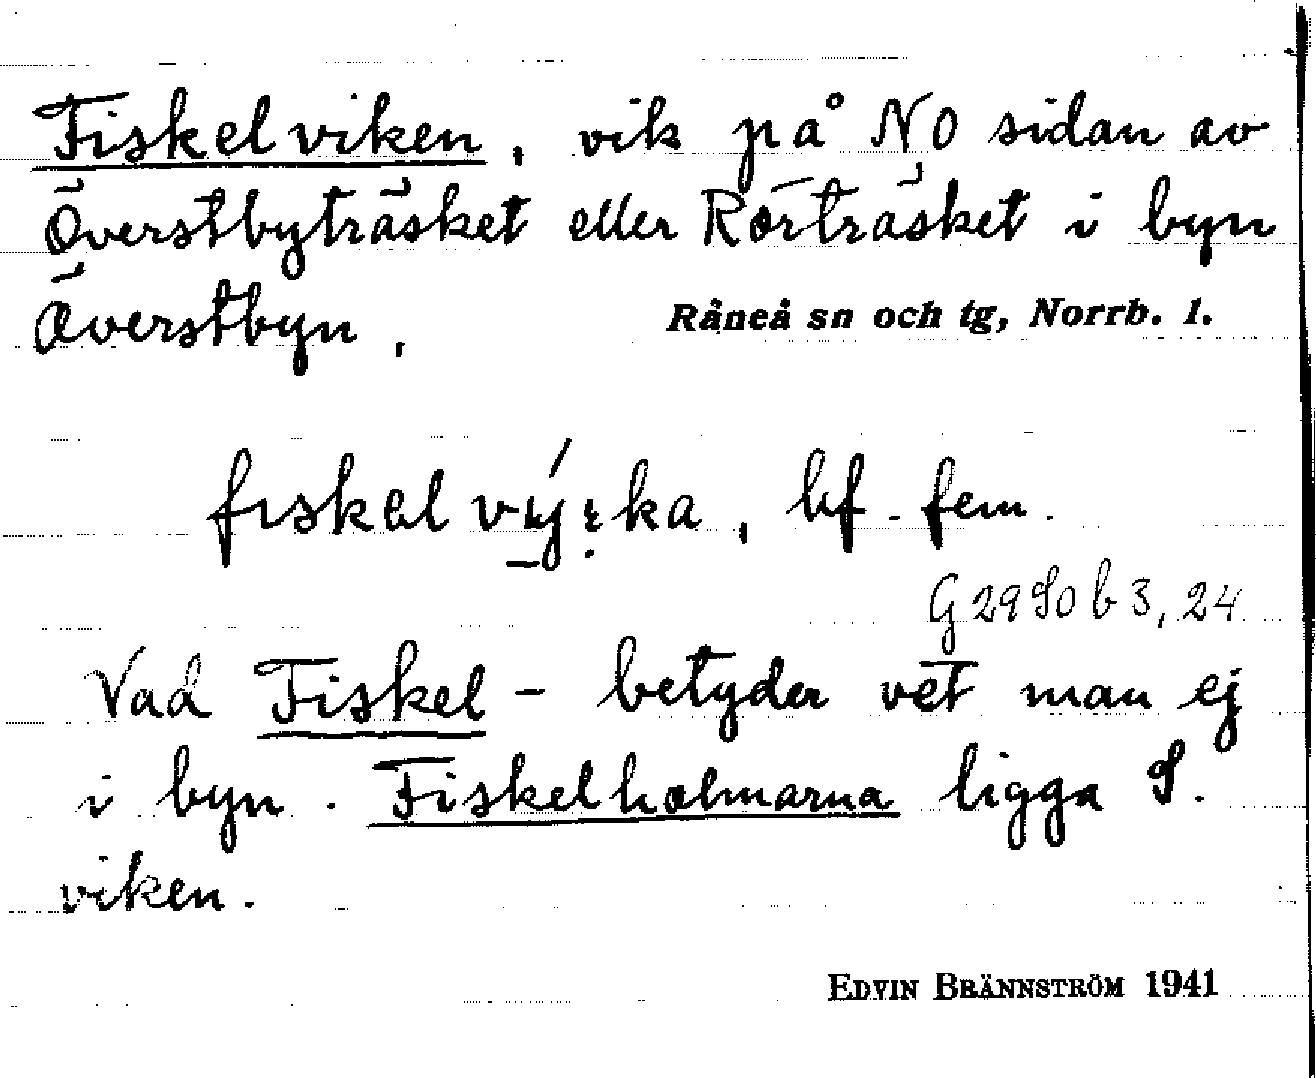 Fiskelviken, vik på NO sidan av
Överstbyträsket eller Rörträsket i byn
Överstbyn.
Råneå sn och tg, Norrb. l.
hf. fem.
G 29 So b 3, 24
Vad Fiskel- betyder vet man ej
i byn. Fiskelholmarna ligga S.
viken.
EDVIN BRÄNNSTRÖM 1941